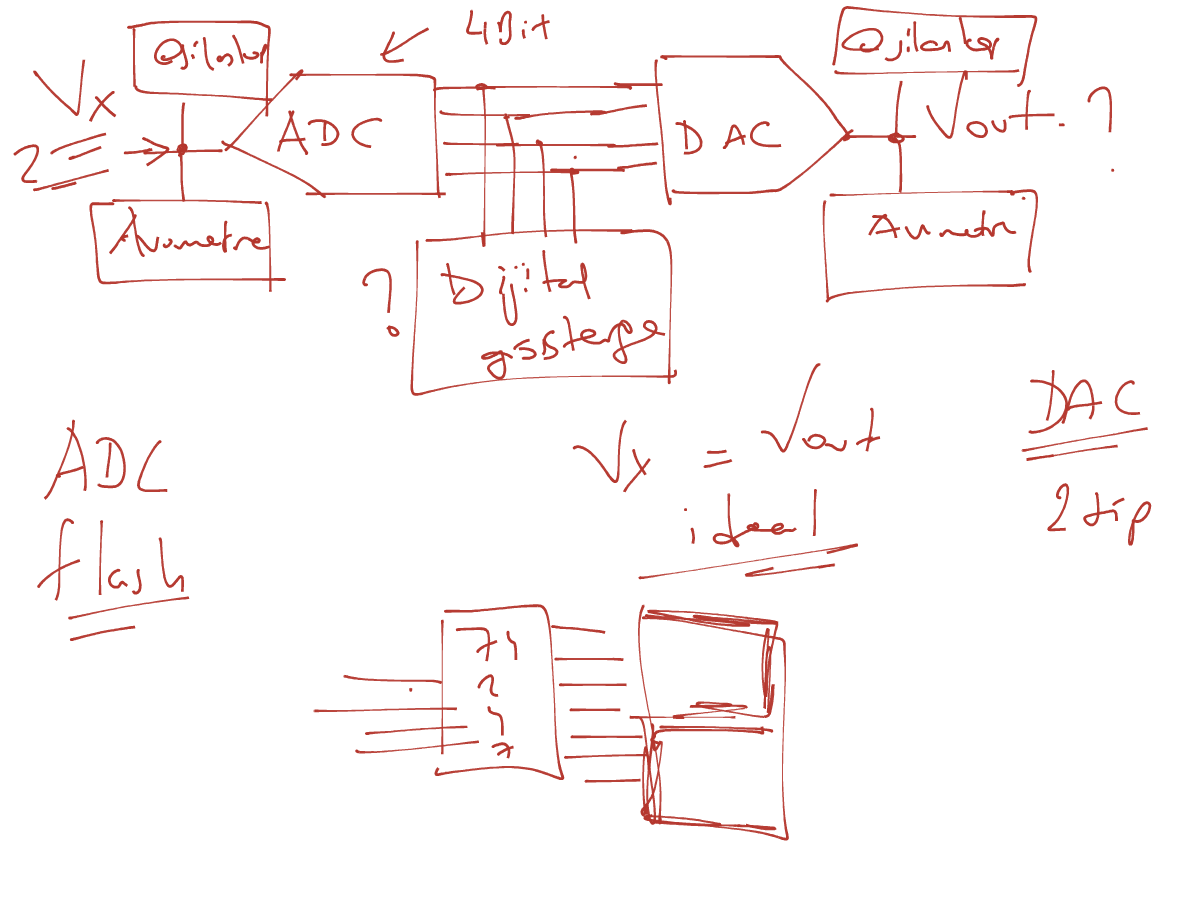 4Bit
Osilaskop
Osilaskop
Vx
2
ADC
DAC
Vout. ?
Avometre
Avometre
?
Dijital
gösterge
ADC
flash
Vx = Vout
ideal
DAC
2 tip
74
2
4
7